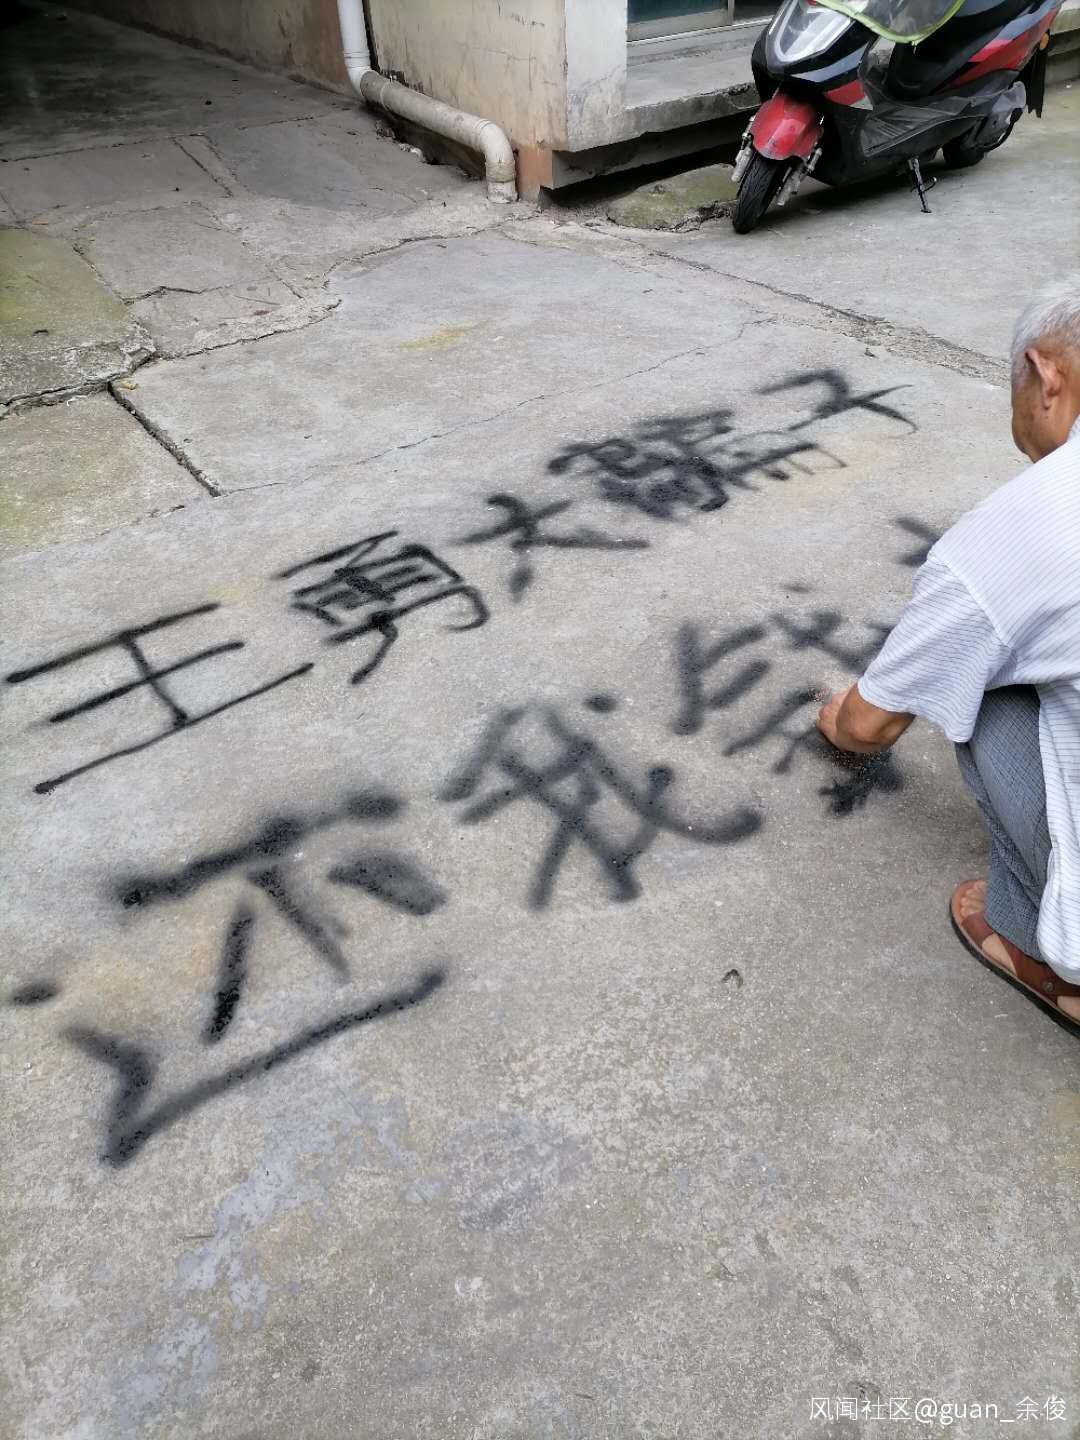 王勇大騙子
还我
风闻社区@guan_余俊